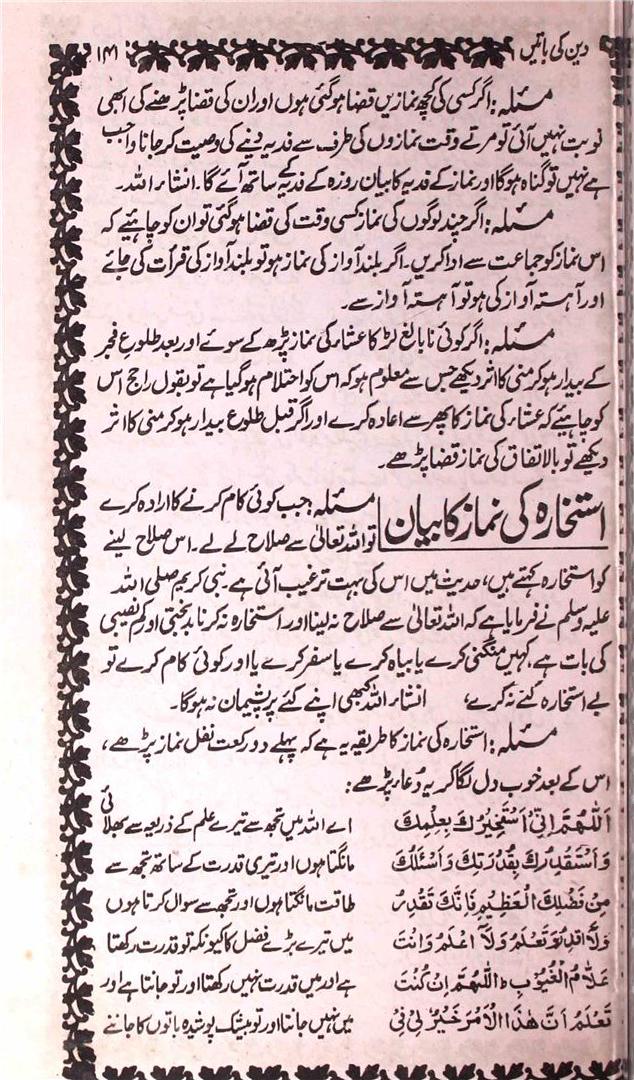 دین کی باتیں
۱۴۱
مسئلہ: اگر کسی کی کچھ نمازیں قضا ہوگئی ہوں اور ان کی قضا پڑھنے کی ابھی
نوبت نہیں آئی تو مرتے وقت نمازوں کی طرف سے فدیہ دینے کی وصیت کر جانا واجب
ہے نہیں تو گناہ ہوگا اور نماز کے فدیہ کا بیان روزہ کے فدیہ کے ساتھ آئے گا۔ انشاء اللہ۔
مسئلہ: اگر چند لوگوں کی نماز کسی وقت کی قضا ہوگئی تو ان کو چاہئیے کہ
اس نماز کو جماعت سے ادا کریں۔ اگر بلند آواز کی نماز ہو تو بلند آواز کی قرأت کی جائے
اور آہستہ آواز کی ہو تو آہستہ آواز سے۔
مسئلہ: اگر کوئی نابالغ لڑکا عشاء کی نماز پڑھ کے سوئے اور بعد طلوع فجر
کے بیدار ہو کر منی کا اثر دیکھے جس سے معلوم ہو کہ اس کو احتلام ہوگیا ہے تو بقول راجح اس
کو چاہئیے کہ عشاء کی نماز کا پھر سے اعادہ کرے اور اگر قبل طلوع بیدار ہو کر منی کا اثر
دیکھے تو بالاتفاق کی نماز قضا پڑھے۔
استخارہ کی نماز کا بیان
مسئلہ: جب کوئی کام کرنے کا ارادہ کرے
تو اللہ تعالیٰ سے صلاح لے لے۔ اس صلاح لینے
کو استخارہ کہتے ہیں، حدیث میں اس کی بہت ترغیب آئی ہے۔ نبی کریم صلی اللہ
علیہ وسلم نے فرمایا ہے کہ اللہ تعالیٰ سے صلاح نہ لینا اور استخارہ نہ کرنا بدبختی اور کم نصیبی
کی بات ہے، کہیں منگنی کرے یا بیاہ کرے یا سفر کرے یا اور کوئی کام کرے تو
بے استخارہ کئے نہ کرے، انشاء اللہ کبھی اپنے کئے پر پشیمان نہ ہوگا۔
مسئلہ: استخارہ کی نماز کا طریقہ یہ ہے کہ پہلے دو رکعت نفل نماز پڑھے،
اس کے بعد خوب دل لگا کر یہ دُعاء پڑھے:
اَللّٰهُمَّ اِنِّیْ اَسْتَخِیْرُكَ بِعِلْمِكَ
وَاَسْتَقْدِرُكَ بِقُدْرَتِكَ وَاَسْئَلُكَ
مِنْ فَضْلِكَ الْعَظِیْمِ فَاِنَّكَ تَقْدِرُ
وَلَاۤ اَقْدِرُ وَتَعْلَمُ وَلَاۤ اَعْلَمُ وَاَنْتَ
عَلَّامُ الْغُیُوْبِ ط اَللّٰهُمَّ اِنْ كُنْتَ
تَعْلَمُ اَنَّ هٰذَا الْاَمْرَ خَیْرٌ لِّیْ فِیْ
اے اللہ میں تجھ سے تیرے علم کے ذریعہ سے بھلائی
مانگتا ہوں اور تیری قدرت کے ساتھ تجھ سے
طاقت مانگتا ہوں اور تجھ سے سوال کرتا ہوں
میں تیرے بڑے فضل کا کیونکہ تو قدرت رکھتا
ہے اور میں قدرت نہیں رکھتا اور تو جانتا ہے اور
میں نہیں جانتا اور تو بیشک پوشیدہ باتوں کا جاننے